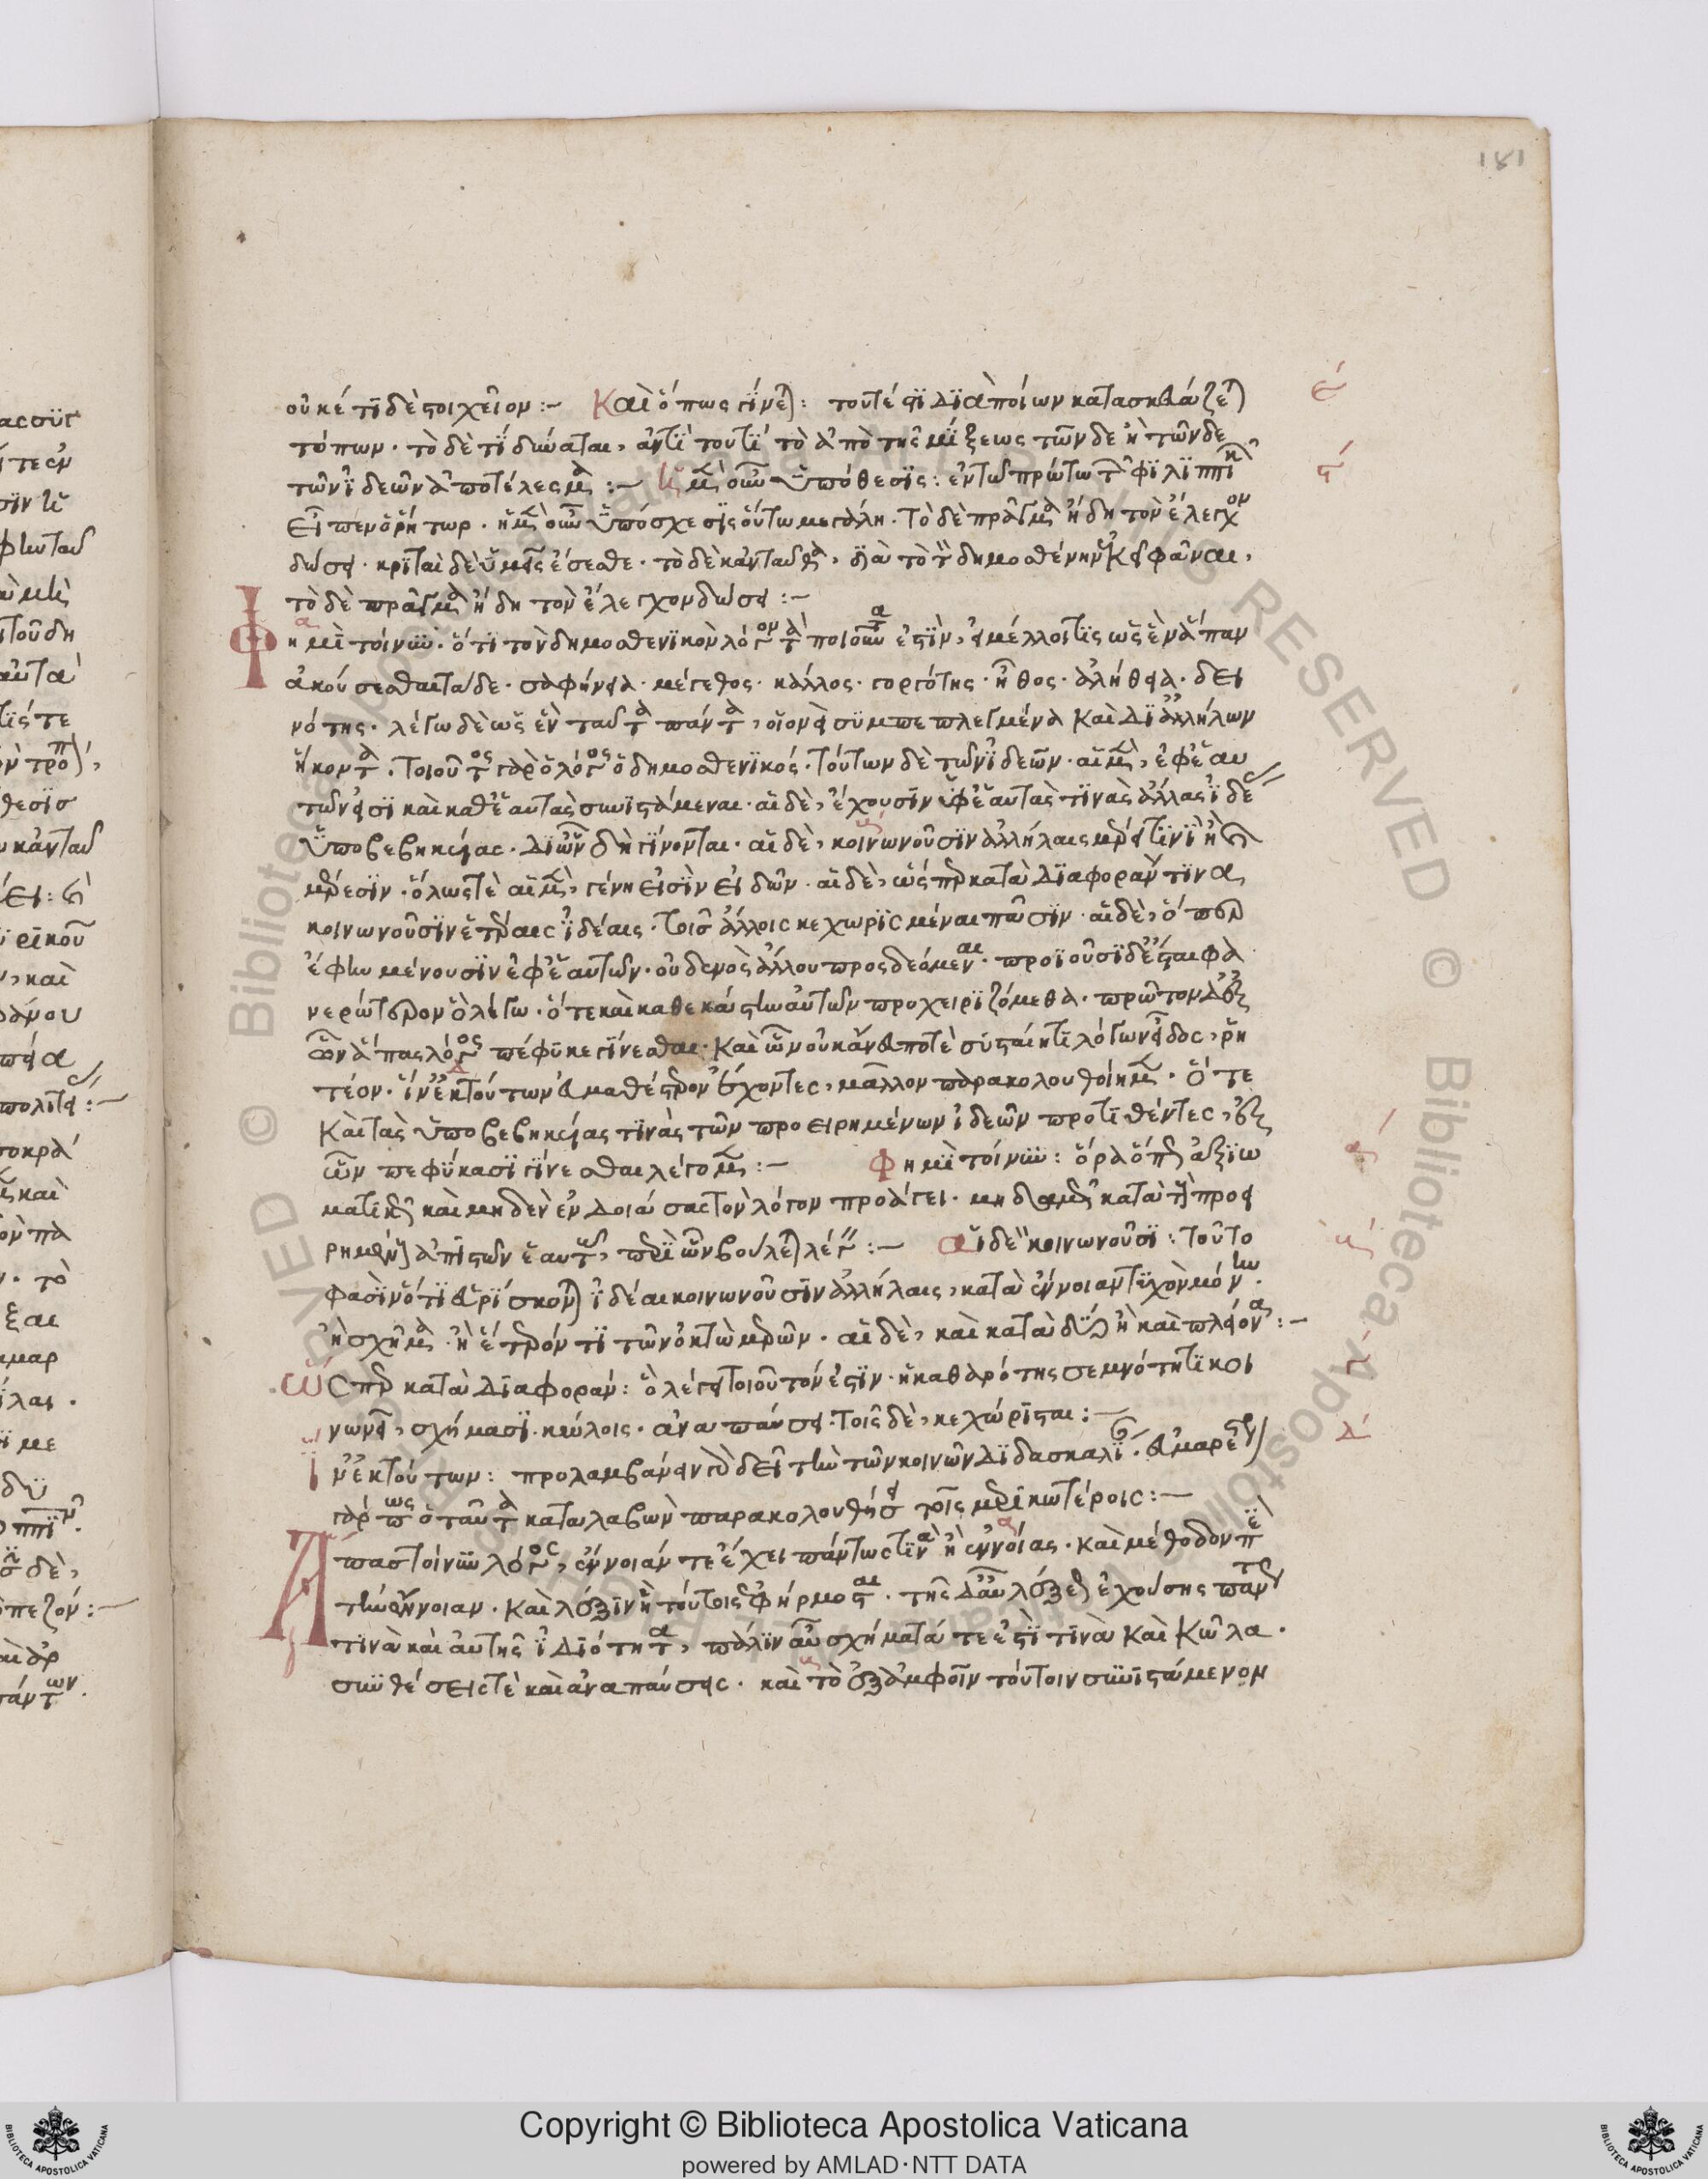 181
οὐκέτι δὲ στοιχεῖον :– Καὶ ὅπως γίνεται : τουτέστι διὰ ποίων κατασκευάζεται ε΄
τόπων · τὸ δὲ τί δύναται, ἀντὶ τοῦ τί τὸ ἀπὸ τῆς μίξεως τῶνδε ἢ τῶνδε
τῶν ἰδεῶν ἀποτέλεσμα :– ἡ μὲν οὖν ὑπόθεσις : ἐν τῶ πρώτω τῶν φιλιππικῶν ς΄
εἶπεν ὁ ῥήτωρ · ἡ μὲν οὖν ὑπόσχεσις οὕτω μεγάλη · τὸ δὲ πρᾶγμα ἤδη τὸν ἔλεγχον
δώσει · κριταὶ δὲ ὑμεῖς ἔσεσθε · τὸ δὲ κἀνταῦθα, διὰ τὸ τὸν δημοσθένην φάναι,
τὸ δὲ πρᾶγμα ἤδη τὸν ἔλεγχον δώσει :–
Φημὶ τοίνυν · ὅτι τὸν δημοσθενικὸν λόγον τὰ ποιοῦντα ἐστὶν, εἰ μέλλοι τις ὡς ἓν ἅπαν
ἀκούσεσθαι τάδε · σαφήνεια · μέγεθος · κάλλος · γοργότης · ἦθος · ἀλήθεια · δει
νότης · λέγω δὲ ὡς ἓν ταῦτα πάντα, οἱονεὶ συμπεπλεγμένα καὶ δι ἀλλήλων
ἥκοντα · τοιοῦτος γὰρ ὁ λόγος ὁ δημοσθενικός · τούτων δὲ τῶν ἰδεῶν · αἱ μὲν, ἐφ ἑαυ
τῶν εἰσι καὶ καθ ἑαυτὰς συνιστάμεναι · αἱ δὲ, ἔχουσιν ὑφ ἑαυτὰς τινὰς ἄλλας ἰδέας
ὑποβεβηκυίας · δι ὧν δὴ γίνονται · αἱ δὲ, κοινωνοῦσιν ἀλλήλαις μέρει τινὶ ἢ καὶ
μέρεσιν · ὅλως τὲ αἱ μὲν, γένη εἰσὶν εἰδῶν · αἱ δὲ, ὥσπερ κατὰ διαφοράν τινα,
κοινωνοῦσιν ἑτέραις ἰδέαις · τοῖς ἄλλοις κεχωρισμέναι πᾶσιν · αἱ δὲ, ὅπερ
ἔφην μένουσιν ἐφ ἑαυτῶν · οὐδενὸς ἄλλου προσδεόμεναι · προϊοῦσι δὲ ἔσται φα
νερώτερον ὃ λέγω · ὅτε καὶ καθ ἑκάστην αὐτῶν προχειριζόμεθα · πρῶτον δὲ ἐξ
ὧν ἅπας λόγος πέφυκε γίνεσθαι · καὶ ὧν οὐκ ἄνευ ποτὲ συσταίη τι λόγων εἶδος, ῥη
τέον · ἵν ἐκ τούτων εὐμαθέστερον ἔχοντες, μᾶλλον παρακολουθοίημεν · ὅτε
καὶ τὰς ὑποβεβηκυίας τινὰς τῶν προειρημένων ἰδεῶν προτιθέντες, ἐξ
ὧν πεφύκασι γίνεσθαι λέγομεν :– Φημὶ τοίνυν : ὅρα ὅπως ἀξιω α΄
ματικῶς καὶ μηδὲν ἐνδοιάσας τὸν λόγον προάγει · μηδαμῶς κατὰ τῶν προει
ρημένων ἀπιστῶν ἑαυτῶ, περὶ ὧν βούλεται λέγειν :– αἱ δὲ κοινωνοῦσι : τοῦτο
φασὶν ὅτι εὑρίσκονται ἰδέαι κοινωνοῦσιν ἀλλήλαις, κατὰ ἔννοιαν τυχὸν μόνην ·
ἢ σχῆμα · ἢ ἕτερόν τι τῶν ὀκτὼ μερῶν · αἱ δὲ, καὶ κατὰ δύο ἢ καὶ πλείονα :–
ὥσπερ κατὰ διαφοράν : ὃ λέγει τοιοῦτόν ἐστιν · ἡ καθαρότης σεμνότητι κοι
νωνεῖ, σχήμασι · κώλοις · ἀναπαύσει · τοῖς δὲ, κεχώρισται :–
ἵν ἐκ τούτων : προλαμβάνειν δεῖ τὴν τῶν κοινῶν διδασκαλίαν · εὐμαρέστερον δ΄
γὰρ πως ὁ ταῦτα καταλαβὼν παρακολουθήσει τοῖς μερικωτέροις :–
Ἅπας τοίνυν λόγος, ἔννοιάν τε ἔχει πάντως τινὰ ἢ ἐννοίας · καὶ μέθοδον περὶ
τὴν ἔννοιαν · καὶ λέξιν ἣ τούτοις ἐφήρμοσται · τῆς δ αὖ λέξεως ἐχούσης πάντως
τινὰ καὶ αὐτῆς ἰδιότητα, πάλιν αὖ σχήματά τε ἐστί τινα καὶ κῶλα ·
συνθέσεις τὲ καὶ ἀναπαύσεις · καὶ τὸ ἐξ ἀμφοῖν τούτοιν συνιστάμενον
Copyright © Biblioteca Apostolica Vaticana
powered by AMLAD·NTT DATA